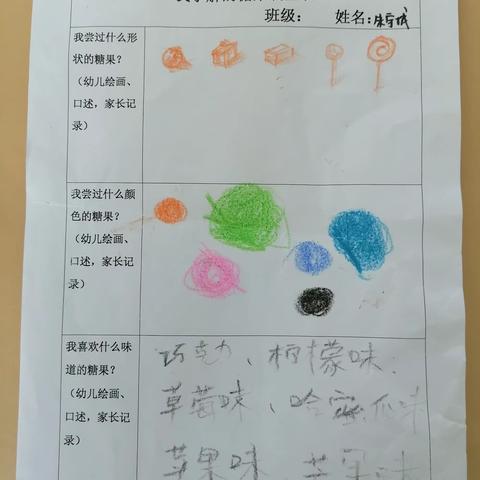 班级： 姓名：
我尝过什么形
状的糖果？
（幼儿绘画、
口述，家长记
录）
我尝过什么颜
色的糖果？
（幼儿绘画、
口述，家长记
录）
我喜欢什么味
道的糖果？
（幼儿绘画、
口述，家长记
录）
巧克力、柠檬味、
草莓味、哈蜜瓜味
苹果味